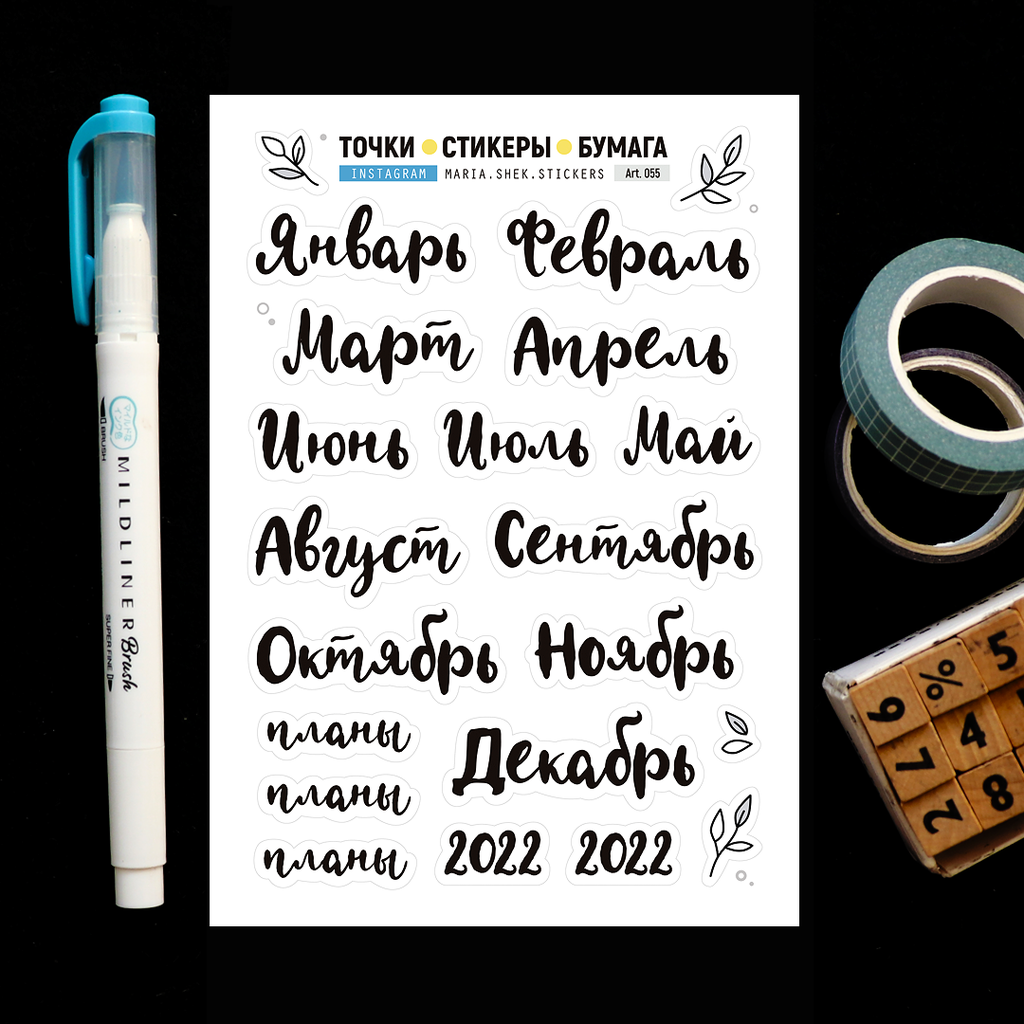 ТОЧКИ СТИКЕРЫ БУМАГА
INSTAGRAM MARIA.SHEK.STICKERS Art. 055
Январь Февраль
Март Апрель
Июнь Июль Май
Август Сентябрь
Октябрь Ноябрь
планы
Декабрь
планы
планы 2022 2022
マイルドな
インク色
BRUSH
MILDLINER Brush
SUPER FINE
9 % 5
7 4
2 8